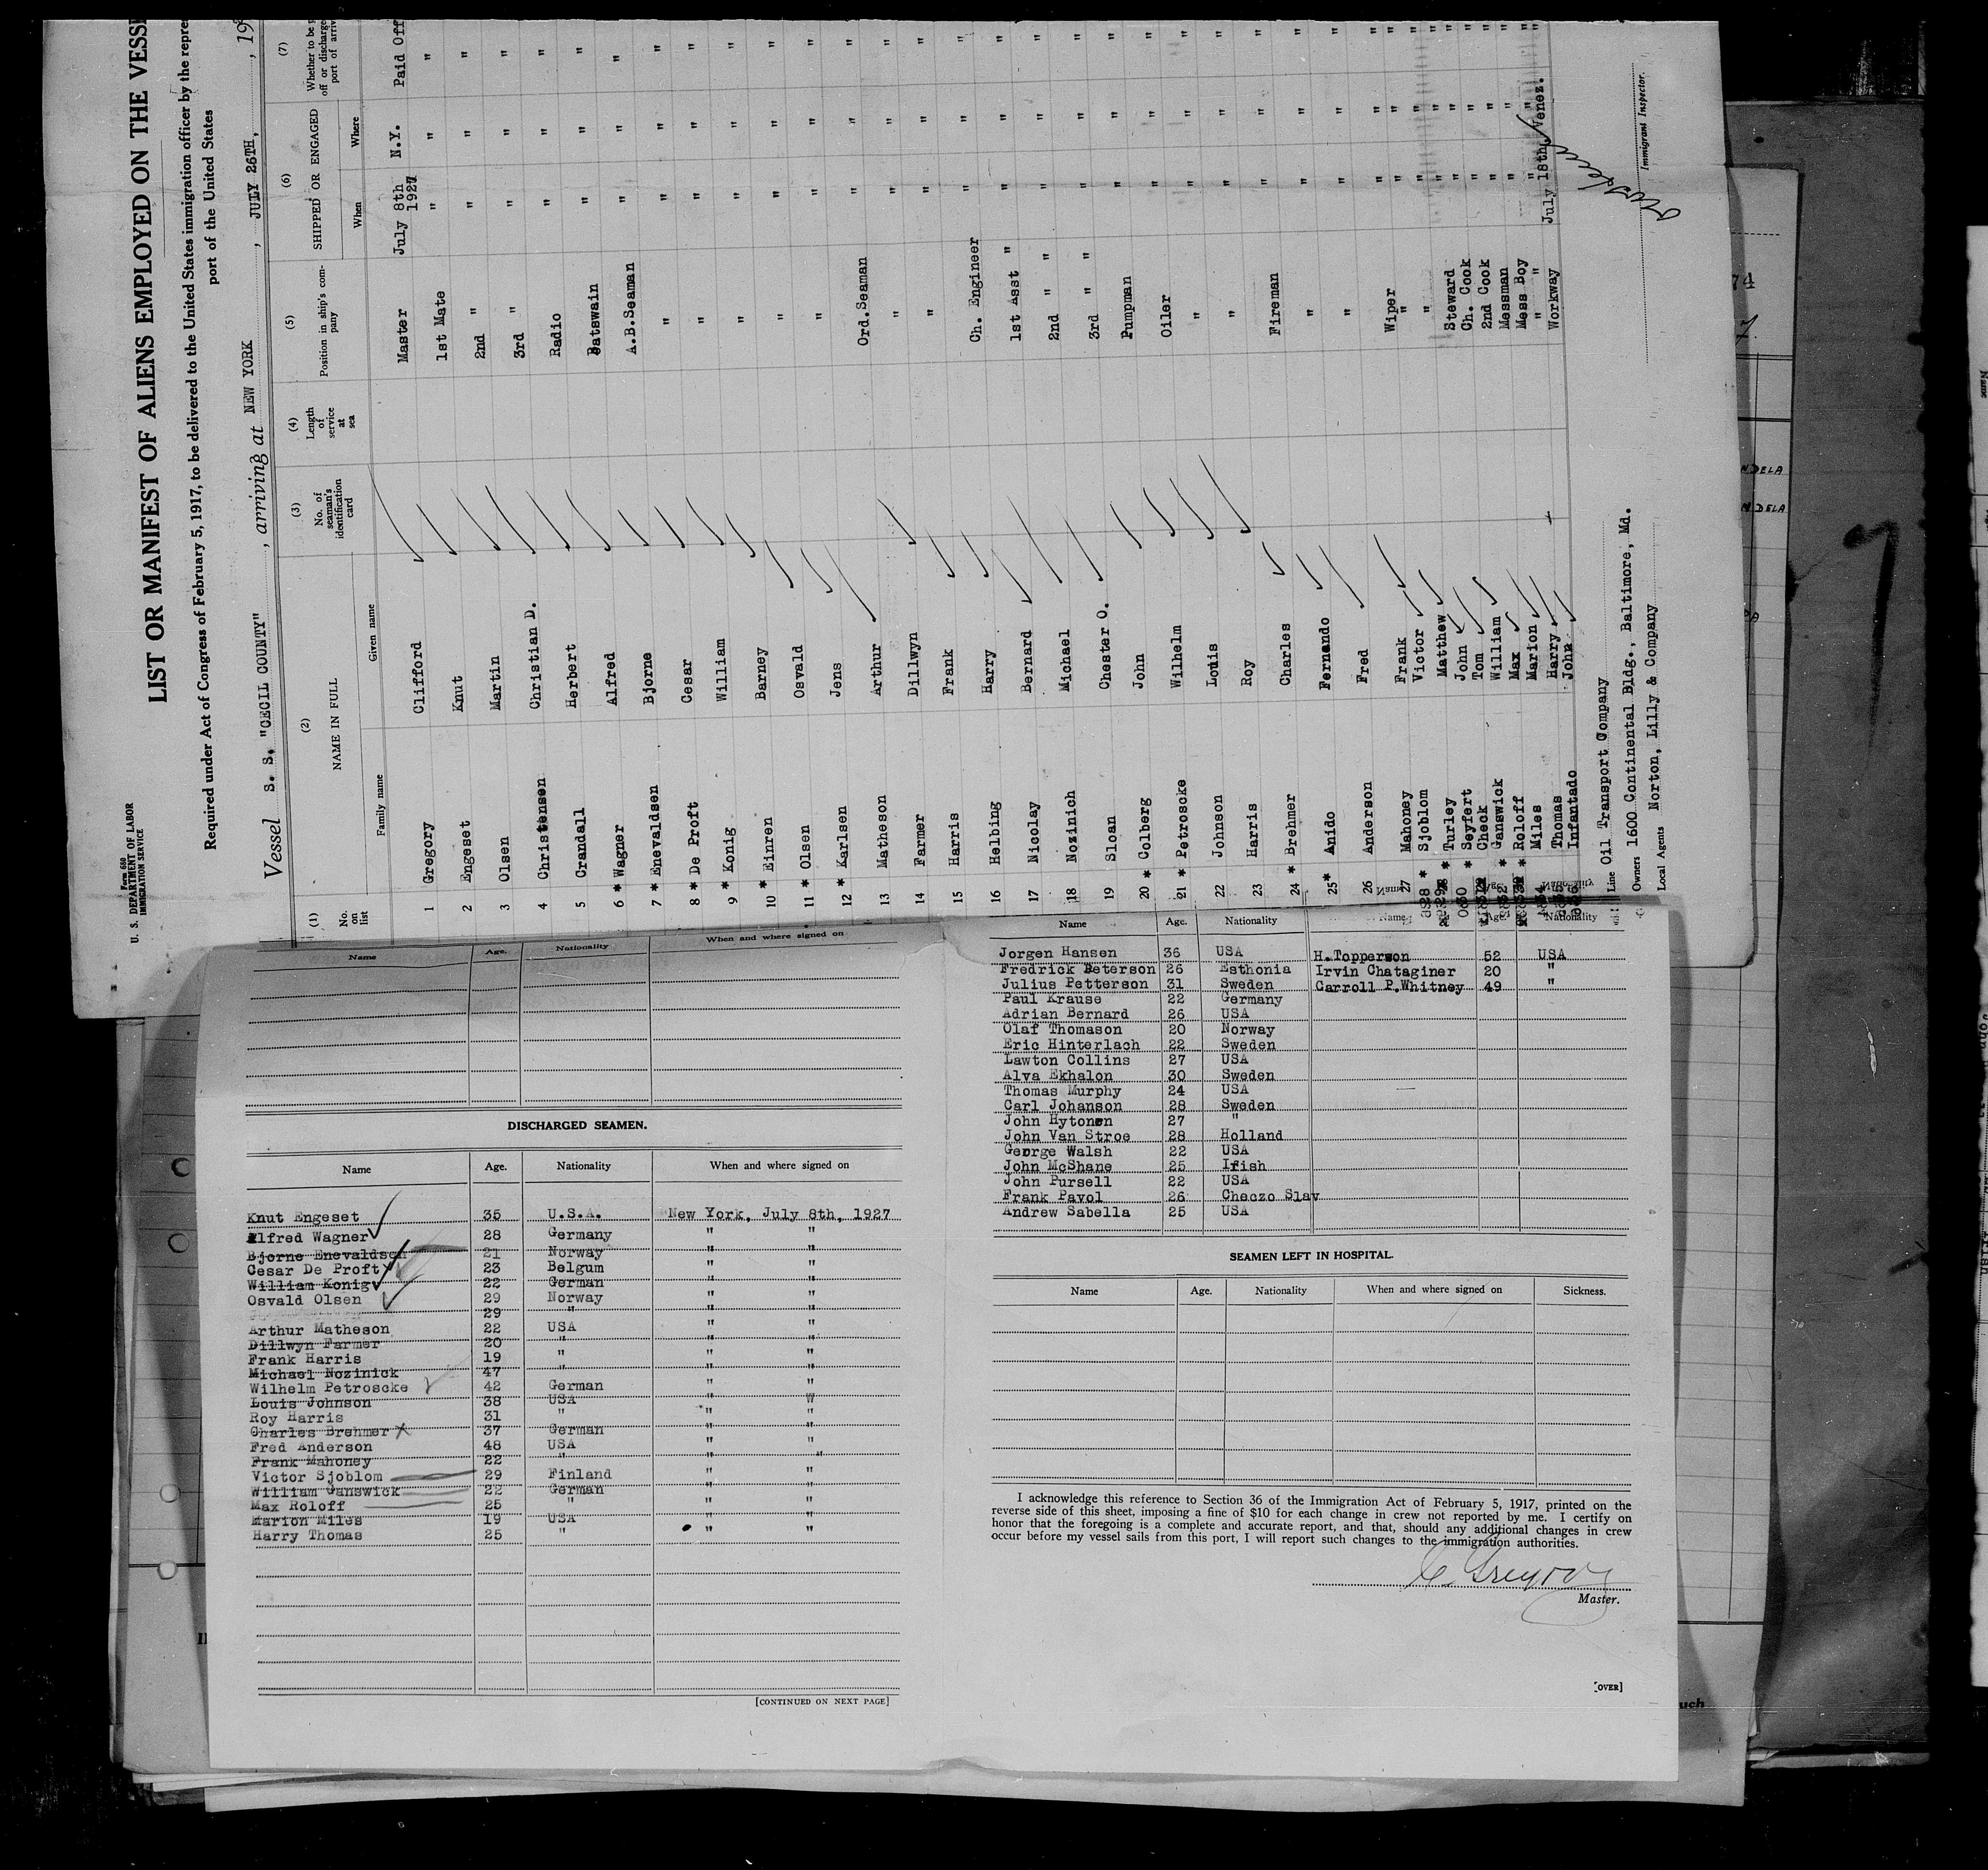 Form 680
U. S. DEPARTMENT OF LABOR
IMMIGRATION SERVICE
LIST OR MANIFEST OF ALIENS EMPLOYED ON THE VESSE
Required under Act of Congress of February 5, 1917, to be delivered to the United States immigration officer by the repre
port of the United States
Vessel S. S. "CECIL COUNTY", arriving at NEW YORK, JULY 26TH, 19
(1) No. on list (2) NAME IN FULL (3) No. of seaman's identification card (4) Length of service at sea (5) Position in ship's company (6) SHIPPED OR ENGAGED (7) Whether to be
off or discharge
port of arriv
Family name Given name When Where
1 Gregory Clifford Master July 8th 1927 N.Y. Paid Off
2 Engeset Knut 1st Mate " " "
3 Olsen Martin 2nd " " " "
4 Christensen Christian D. 3rd " " " "
5 Crandall Herbert Radio " " "
6 * Wagner Alfred Batswsin " " "
7 * Enevaldsen Bjorne A.B.Seaman " " "
8 * De Proft Cesar " " " "
9 * Konig William " " " "
10 * Einren Barney " " " "
11 * Olsen Osvald " " " "
12 * Karlsen Jens " " " "
13 Matheson Arthur Ord.Seaman " " "
14 Farmer Dillwyn " " " "
15 Harris Frank " " " "
16 Helbing Harry Ch. Engineer " " "
17 Nicolay Bernard 1st Asst " " " "
18 Nozinich Michael 2nd " " " " "
19 Sloan Chester O. 3rd " " " " "
20 * Colberg John Pumpman " " "
21 * Petroscke Wilhelm Oiler " " "
22 Johnson Louis " " " "
23 Harris Roy " " " "
24 * Brehmer Charles Fireman " " "
25 * Anido Fernando " " " "
26 Anderson Fred " " " "
27 Mahoney Frank Wiper " " "
28 * Sjoblom Victor " " " "
* Turley Matthew " " " "
* Seyfert John Steward " " "
Check Tom Ch. Cook " " "
* Ganswick William 2nd Cook " " "
* Roloff Max Messman " " "
Miles Marion Mess Boy " " "
Thomas Harry " " " " "
Infantado John Workway July 18th, Venez. "
Line Oil Transport Company
Owners 1600 Continental Bldg., Baltimore, Md.
Local Agents Norton, Lilly & Company
Immigrant Inspector.
Name Age. Nationality When and where signed on
DISCHARGED SEAMEN.
Name Age. Nationality When and where signed on
Knut Engeset 35 U.S.A. New York, July 8th, 1927
Alfred Wagner 28 Germany " "
Bjorne Enevaldsen 21 Norway " "
Cesar De Proft 23 Belgum " "
William Konig 22 German " "
Osvald Olsen 29 Norway " "
29 " " "
Arthur Matheson 22 USA " "
Dillwyn Farmer 20 " " "
Frank Harris 19 " " "
Michael Nozinick 47 " " "
Wilhelm Petroscke 42 German " "
Louis Johnson 38 USA " W
Roy Harris 31 " " "
Charles Brehmer 37 German " "
Fred Anderson 48 USA " "
Frank Mahoney 22 " " "
Victor Sjoblom 29 Finland " "
William Ganswick 22 German " "
Max Roloff 25 " " "
Marion Miles 19 USA " "
Harry Thomas 25 " " "
[CONTINUED ON NEXT PAGE]
Name Age. Nationality Name Age. Nationality
Jorgen Hansen 36 USA H.Topperson 52 USA
Fredrick Peterson 26 Esthonia Irvin Chataginer 20 "
Julius Petterson 31 Sweden Carroll P.Whitney 49 "
Paul Krause 22 Germany
Adrian Bernard 26 USA
Olaf Thomason 20 Norway
Eric Hinterlach 22 Sweden
Lawton Collins 27 USA
Alva Ekhalon 30 Sweden
Thomas Murphy 24 USA
Carl Johanson 28 Sweden
John Hytonen 27 "
John Van Stroe 28 Holland
George Walsh 22 USA
John McShane 25 Irish
John Pursell 22 USA
Frank Pavol 26 Checzo Slav
Andrew Sabella 25 USA
SEAMEN LEFT IN HOSPITAL.
Name Age. Nationality When and where signed on Sickness.
I acknowledge this reference to Section 36 of the Immigration Act of February 5, 1917, printed on the
reverse side of this sheet, imposing a fine of $10 for each change in crew not reported by me. I certify on
honor that the foregoing is a complete and accurate report, and that, should any additional changes in crew
occur before my vessel sails from this port, I will report such changes to the immigration authorities.
C Gregory
Master.
[OVER]
74
7.
NDELA
NDELA
uch